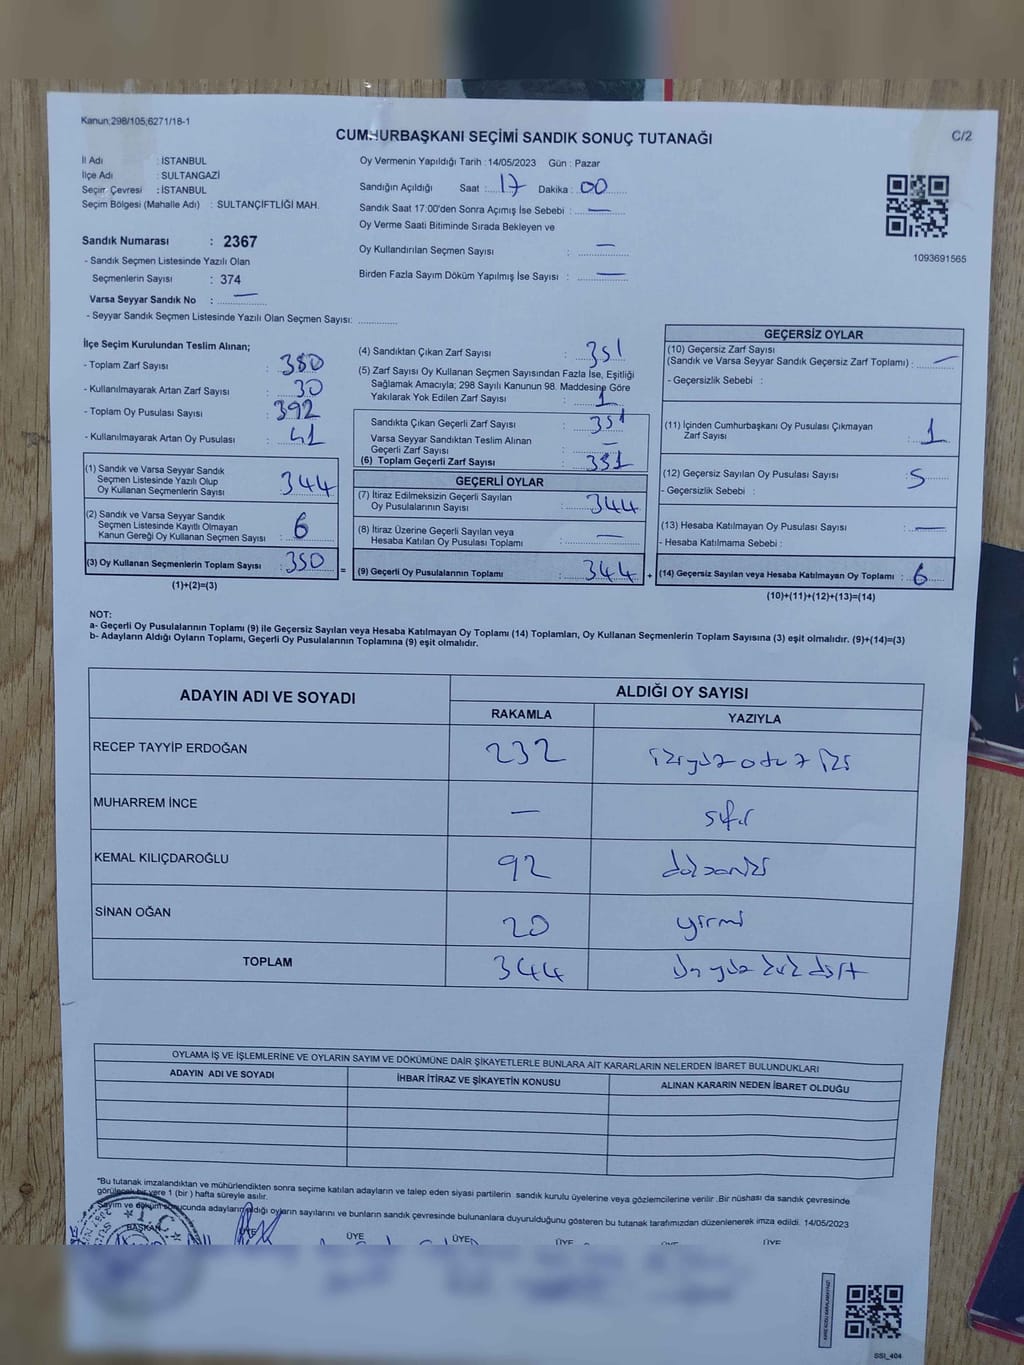 Kanun;298/105,6271/18-1
CUMHURBAŞKANI SEÇİMİ SANDIK SONUÇ TUTANAĞI
C/2
İl Adı : İSTANBUL
İlçe Adı : SULTANGAZİ
Seçim Çevresi : İSTANBUL
Seçim Bölgesi (Mahalle Adı) : SULTANÇİFTLİĞİ MAH.
Oy Vermenin Yapıldığı Tarih : 14/05/2023 Gün : Pazar
Sandığın Açıldığı Saat : 17 Dakika : 00
Sandık Saat 17:00'den Sonra Açımış İse Sebebi : —
Oy Verme Saati Bitiminde Sırada Bekleyen ve
Oy Kullandırılan Seçmen Sayısı : —
Birden Fazla Sayım Döküm Yapılmış İse Sayısı : —
1093691565
Sandık Numarası : 2367
- Sandık Seçmen Listesinde Yazılı Olan
Seçmenlerin Sayısı : 374
Varsa Seyyar Sandık No : —
- Seyyar Sandık Seçmen Listesinde Yazılı Olan Seçmen Sayısı: ..............
İlçe Seçim Kurulundan Teslim Alınan;
- Toplam Zarf Sayısı : 380
- Kullanılmayarak Artan Zarf Sayısı : 30
- Toplam Oy Pusulası Sayısı : 392
- Kullanılmayarak Artan Oy Pusulası : 41
(1) Sandık ve Varsa Seyyar Sandık
Seçmen Listesinde Yazılı Olup
Oy Kullanan Seçmenlerin Sayısı : 344
(2) Sandık ve Varsa Seyyar Sandık
Seçmen Listesinde Kayıtlı Olmayan
Kanun Gereği Oy Kullanan Seçmen Sayısı : 6
(3) Oy Kullanan Seçmenlerin Toplam Sayısı : 350 =
(1)+(2)=(3)
(4) Sandıktan Çıkan Zarf Sayısı : 351
(5) Zarf Sayısı Oy Kullanan Seçmen Sayısından Fazla İse, Eşitliği
Sağlamak Amacıyla; 298 Sayılı Kanunun 98. Maddesine Göre
Yakılarak Yok Edilen Zarf Sayısı : 1
Sandıkta Çıkan Geçerli Zarf Sayısı : 351
Varsa Seyyar Sandıktan Teslim Alınan
Geçerli Zarf Sayısı : —
(6) Toplam Geçerli Zarf Sayısı : 351
GEÇERLİ OYLAR
(7) İtiraz Edilmeksizin Geçerli Sayılan
Oy Pusulalarının Sayısı : 344
(8) İtiraz Üzerine Geçerli Sayılan veya
Hesaba Katılan Oy Pusulası Toplamı : —
(9) Geçerli Oy Pusulalarının Toplamı : 344 +
GEÇERSİZ OYLAR
(10) Geçersiz Zarf Sayısı
(Sandık ve Varsa Seyyar Sandık Geçersiz Zarf Toplamı) : —
- Geçersizlik Sebebi :
(11) İçinden Cumhurbaşkanı Oy Pusulası Çıkmayan
Zarf Sayısı : 1
(12) Geçersiz Sayılan Oy Pusulası Sayısı : 5
- Geçersizlik Sebebi :
(13) Hesaba Katılmayan Oy Pusulası Sayısı : —
- Hesaba Katılmama Sebebi :
(14) Geçersiz Sayılan veya Hesaba Katılmayan Oy Toplamı : 6
(10)+(11)+(12)+(13)=(14)
NOT:
a- Geçerli Oy Pusulalarının Toplamı (9) ile Geçersiz Sayılan veya Hesaba Katılmayan Oy Toplamı (14) Toplamları, Oy Kullanan Seçmenlerin Toplam Sayısına (3) eşit olmalıdır. (9)+(14)=(3)
b- Adayların Aldığı Oyların Toplamı, Geçerli Oy Pusulalarının Toplamına (9) eşit olmalıdır.
ADAYIN ADI VE SOYADI
ALDIĞI OY SAYISI
RAKAMLA
YAZIYLA
RECEP TAYYİP ERDOĞAN 232 ikiyüz otuz iki
MUHARREM İNCE — sıfır
KEMAL KILIÇDAROĞLU 92 doksaniki
SİNAN OĞAN 20 yirmi
TOPLAM 344 üç yüz kırk dört
OYLAMA İŞ VE İŞLEMLERİNE VE OYLARIN SAYIM VE DÖKÜMÜNE DAİR ŞİKAYETLERLE BUNLARA AİT KARARLARIN NELERDEN İBARET BULUNDUKLARI
ADAYIN ADI VE SOYADI
İHBAR İTİRAZ VE ŞİKAYETİN KONUSU
ALINAN KARARIN NEDEN İBARET OLDUĞU
"Bu tutanak imzalandıktan ve mühürlendikten sonra seçime katılan adayların ve talep eden siyasi partilerin sandık kurulu üyelerine veya gözlemcilerine verilir .Bir nüshası da sandık çevresinde
görülecek bir yere 1 (bir ) hafta süreyle asılır.
Sayım ve döküm sonucunda adayların aldığı oyların sayılarını ve bunların sandık çevresinde bulunanlara duyurulduğunu gösteren bu tutanak tarafımızdan düzenlenerek imza edildi. 14/05/2023
BAŞKAN ÜYE ÜYE ÜYE ÜYE ÜYE
SSİ_404